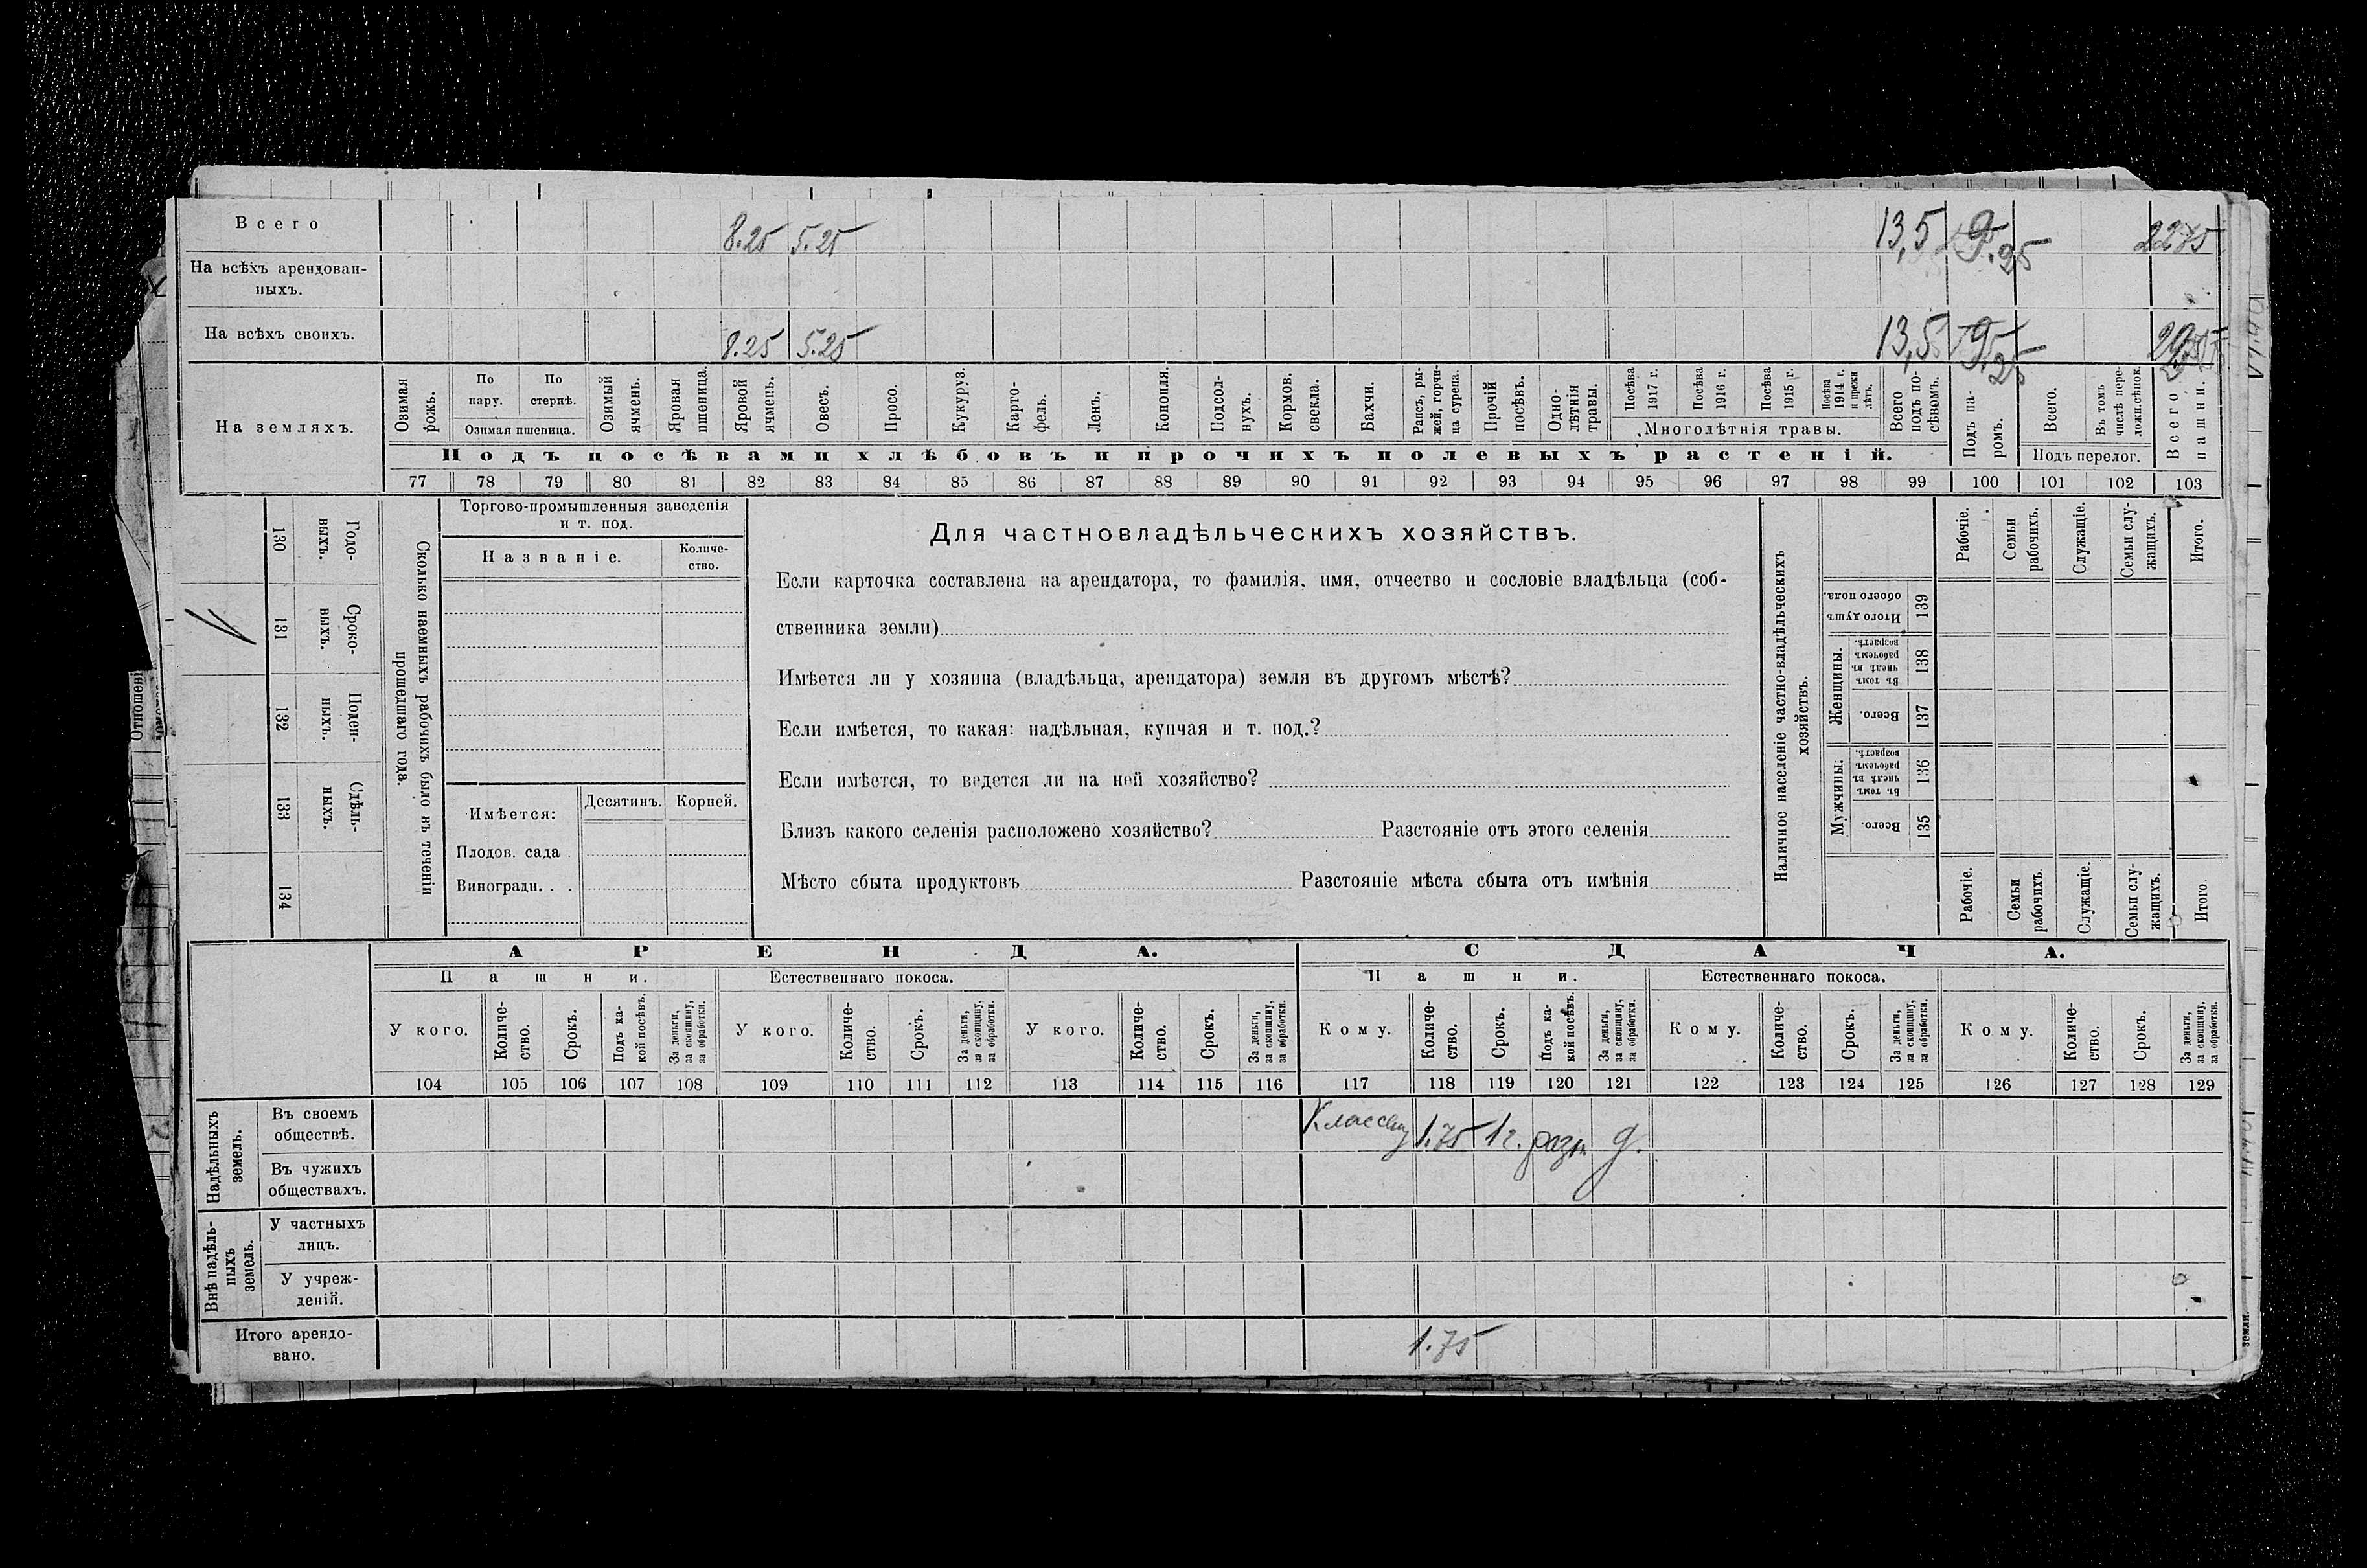 Всего 8.25 5.25 13,5 9.25 22 75
На всѣхъ арендован-
ныхъ.
На всѣхъ своихъ. 8.25 5.25 13,5 9.25
На земляхъ.
Озимая рожь.
По пару.
По стернѣ.
Озимая пшеница.
Озимый ячмень.
Яровая пшеница.
Яровой ячмень.
Овесъ.
Просо.
Кукуруз.
Карто-
фель.
Ленъ.
Конопля.
Подсол-
нухъ.
Кормов. свекла.
Бахчи.
Рапсъ, ры-
жей, горчи-
ца сурепа.
Прочій посѣвъ.
Одно-
лѣтнія травы.
Посѣва 1917 г.
Посѣва 1916 г.
Посѣва 1915 г.
Посѣва 1914 г. и прежн лѣтъ.
Многолѣтнія травы.
Всего подъ по-
сѣвомъ.
Подъ па-
ромъ.
Всего.
Въ томъ числѣ пере-
ложн.сѣнок.
Подъ перелог.
Всего пашни.
Подъ посѣвами хлѣбовъ и прочихъ полевыхъ растеній.
77 78 79 80 81 82 83 84 85 86 87 88 89 90 91 92 93 94 95 96 97 98 99 100 101 102 103
130 Годо-
ныхъ.
131 Сроко-
выхъ.
132 Поден-
ныхъ.
133 Сдѣль-
ныхъ.
134
Сколько наемныхъ рабочихъ было въ теченіи
прошедшаго года.
Торгово-промышленныя заведенія
и т. под.
Названіе.
Количе-
ство.
Имѣется:
Десятинъ. Корней.
Плодов. сада .
Виноградн. . .
Для частновладѣльческихъ хозяйствъ.
Если карточка составлена на арендатора, то фамилія, имя, отчество и сословіе владѣльца (соб-
ственника земли)
Имѣется ли у хозяина (владѣльца, арендатора) земля въ другомъ мѣстѣ?
Если имѣется, то какая: надѣльная, купчая и т. под.?
Если имѣется, то ведется ли на ней хозяйство?
Близъ какого селенія расположено хозяйство? Разстояніе отъ этого селенія
Мѣсто сбыта продуктовъ Разстояніе мѣста сбыта отъ имѣнія
Наличное населеніе частно-владѣльческихъ
хозяйствъ.
Рабочіе.
Семьи рабочихъ.
Служащіе.
Семьи слу-
жащихъ.
Итого.
Итого душъ обоего пола. 139
Женщины.
Въ томъ числѣ въ рабочемъ возрастѣ. 138
Всего. 137
Мужчины.
Въ томъ числѣ въ рабочемъ возрастѣ. 136
Всего. 135
Рабочіе.
Семьи рабочихъ.
Служащіе.
Семьи слу-
жащихъ.
Итого.
Отношені
АРЕНДА. СДАЧА.
Пашни. Естественнаго покоса. Пашни. Естественнаго покоса.
У кого.
Количе-
ство.
Срокъ.
Подъ ка-
кой посѣвъ.
За деньги, за скопщину, за обработки.
У кого.
Количе-
ство.
Срокъ.
За деньги, за скопщину, за обработки.
У кого.
Количе-
ство.
Срокъ.
За деньги, за скопщину, за обработки.
Кому.
Количе-
ство.
Срокъ.
Подъ ка-
кой посѣвъ.
За деньги, за скопщину, за обработки.
Кому.
Количе-
ство.
Срокъ.
За деньги, за скопщину, за обработки.
Кому.
Количе-
ство.
Срокъ.
За деньги, за скопщину, за обработки.
104 105 106 107 108 109 110 111 112 113 114 115 116 117 118 119 120 121 122 123 124 125 126 127 128 129
Надѣльныхъ
земель.
Въ своемъ
обществѣ.
Классену 1.75 1 г. разн д.
Въ чужихъ
обществахъ.
Внѣ надѣль-
ныхъ
земель.
У частныхъ
лицъ.
У учреж-
деній.
Итого арендо-
вано.
1.75
земли.